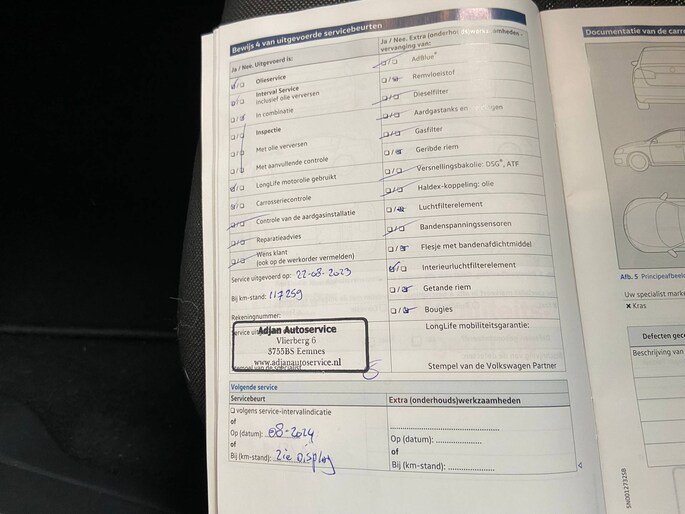 Bewijs 4 van uitgevoerde servicebeurten
Ja / Nee. Uitgevoerd is:
Olieservice
Interval Service
inclusief olie verversen
In combinatie
Inspectie
Met olie verversen
Met aanvullende controle
LongLife motorolie gebruikt
Carrosseriecontrole
Controle van de aardgasinstallatie
Reparatieadvies
Wens klant
(ook op de werkorder vermelden)
Service uitgevoerd op: 22-08-2023
Bij km-stand: 117259
Rekeningnummer:
Adjan Autoservice
Vlierberg 6
3755BS Eemnes
www.adjanautoservice.nl
Ja / Nee. Extra
vervanging van:
AdBlue®
Remvloeistof
Dieselfilter
Aardgastanks en
Gasfilter
Geribde riem
Versnellingsbakolie: DSG®, ATF
Haldex-koppeling: olie
Luchtfilterelement
Bandenspanningssensoren
Flesje met bandenafdichtmiddel
Interieurluchtfilterelement
Getande riem
Bougies
LongLife mobiliteitsgarantie:
Stempel van de Volkswagen Partner
Volgende service
Servicebeurt
volgens service-intervalindicatie
of
Op (datum): 08-2024
of
Bij (km-stand): zie Display
Extra (onderhouds)werkzaamheden
Op (datum):
of
Bij (km-stand):
Documentatie van de carr
Afb. 5 Principeafbeel
Uw specialist marke
× Kras
Defecten gec
Beschrijving van
5N0012732SB